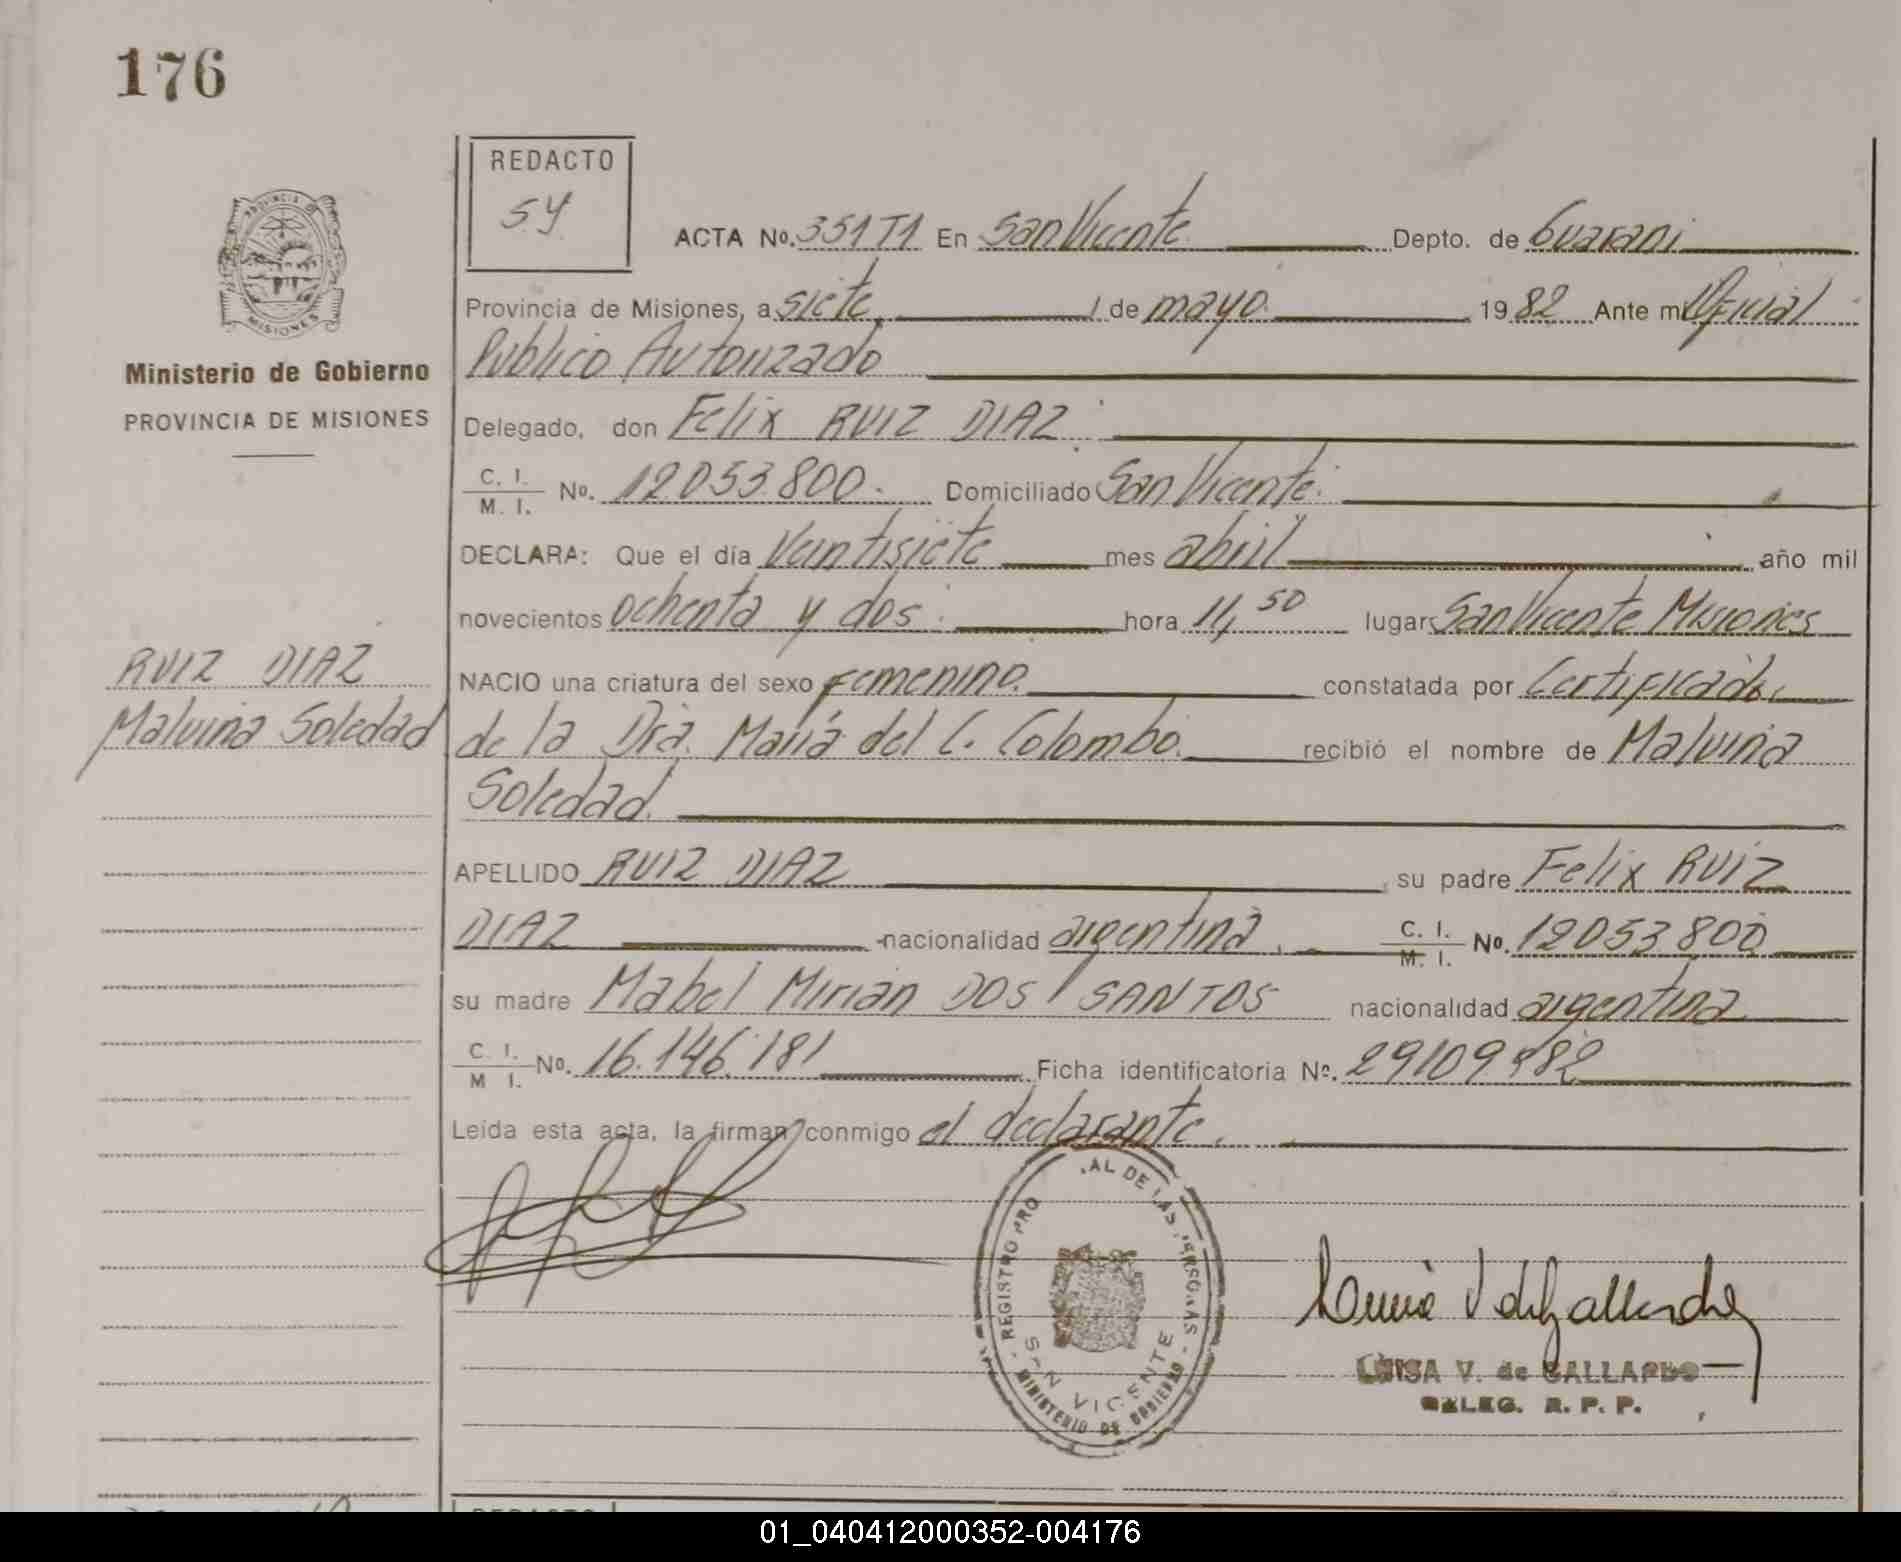 176
REDACTO
SY
PROVINCIA DE
MISIONES
Ministerio de Gobierno
PROVINCIA DE MISIONES
ACTA No. 351 T1 En San Vicente Depto. de Guarani
Provincia de Misiones, a siete / de mayo. 1982 Ante mi Oficial
Publico Autorizado
Delegado, don Felix RUIZ DIAZ
C. I. / M. I. No. 12053.800. Domiciliado San Vicente.
DECLARA: Que el día Veintisiete mes abril año mil
novecientos ochenta y dos. hora 11,50 lugar San Vicente Misiones
RUIZ DIAZ
Malvina Soledad
NACIO una criatura del sexo femenino. constatada por Certificado
de la Dra. María del C. Colombo. recibió el nombre de Malvina
Soledad.
APELLIDO RUIZ DIAZ su padre Felix RUIZ
DIAZ nacionalidad argentina, C. I. / M. I. No. 12053.800
su madre Mabel Mirian DOS SANTOS nacionalidad argentina
C. I. / M I. No. 16.146.181 Ficha identificatoria No. 29109882
Leída esta acta, la firman conmigo el declarante.
REGISTRO PRO AL DE LAS PERSONAS
SAN VICENTE
- MINISTERIO DE GOBIERNO -
LUISA V. de GALLARDO
DELEG. R. P. P.
REDACTO
01_040412000352-004176